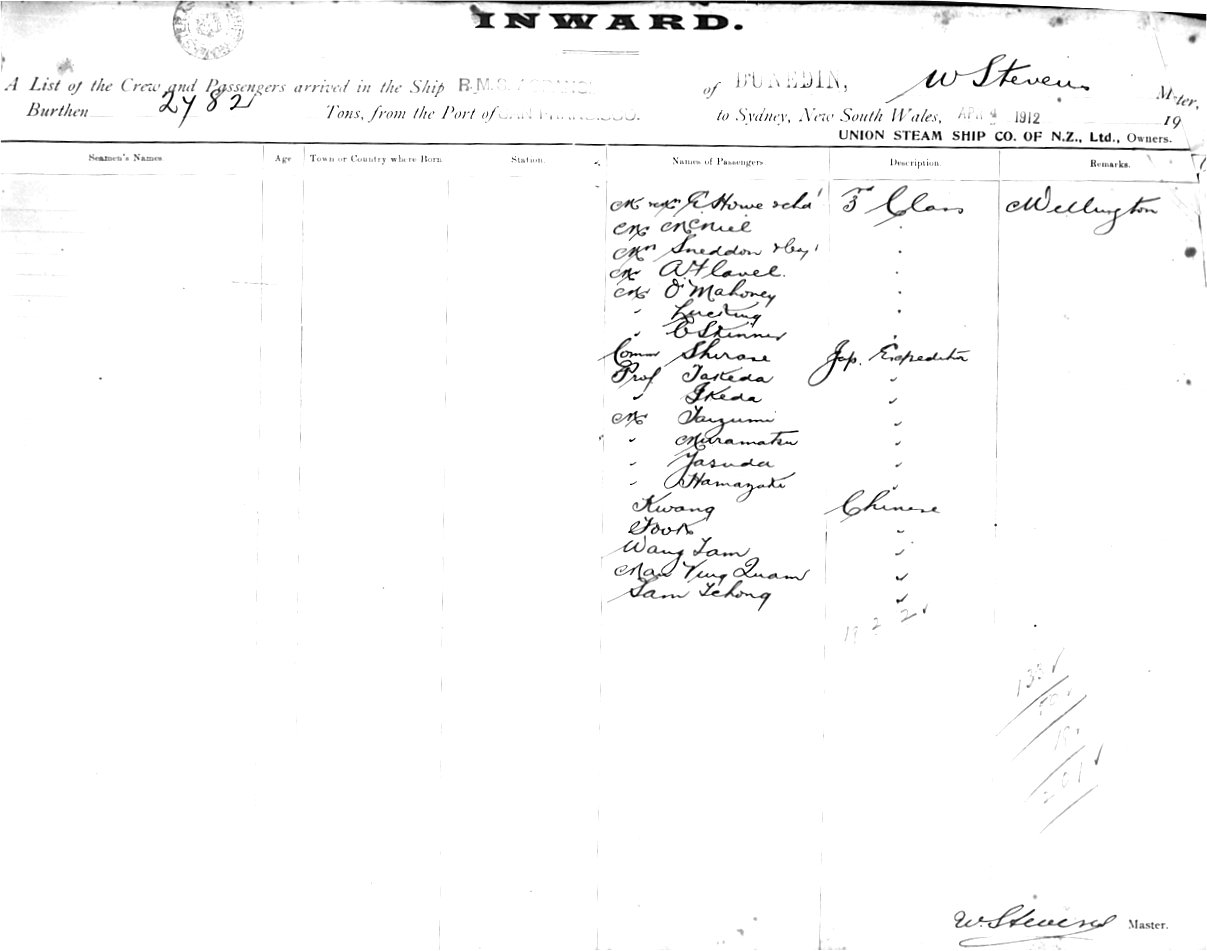 INWARD.
A List of the Crew and Passengers arrived in the Ship R.M.S. AORANGI of DUNEDIN, W Stevens Master,
Burthen 2782 Tons, from the Port of SAN FRANCISCO. to Sydney, New South Wales, APR 1912 19
UNION STEAM SHIP CO. OF N.Z., Ltd., Owners.
Seamen's Names Age Town or Country where Born Station. Names of Passengers Description. Remarks.
Howe 3rd Class Wellington
Mr McNeil
Mrs Sneddon
Mr A Flavel.
Mr O'Mahoney
" Lucking
" C Skinner
Comm Shirase Jap. Expedition
Prof Takeda "
" Ikeda "
Mr Taizumi "
" Muramatsu "
" Yasuda "
" Hamazaki "
Kwang Chinese
Fook "
Wang Tam "
Man Ying Quam "
Sam Tchong "
19 2 2
W. Stevens Master.